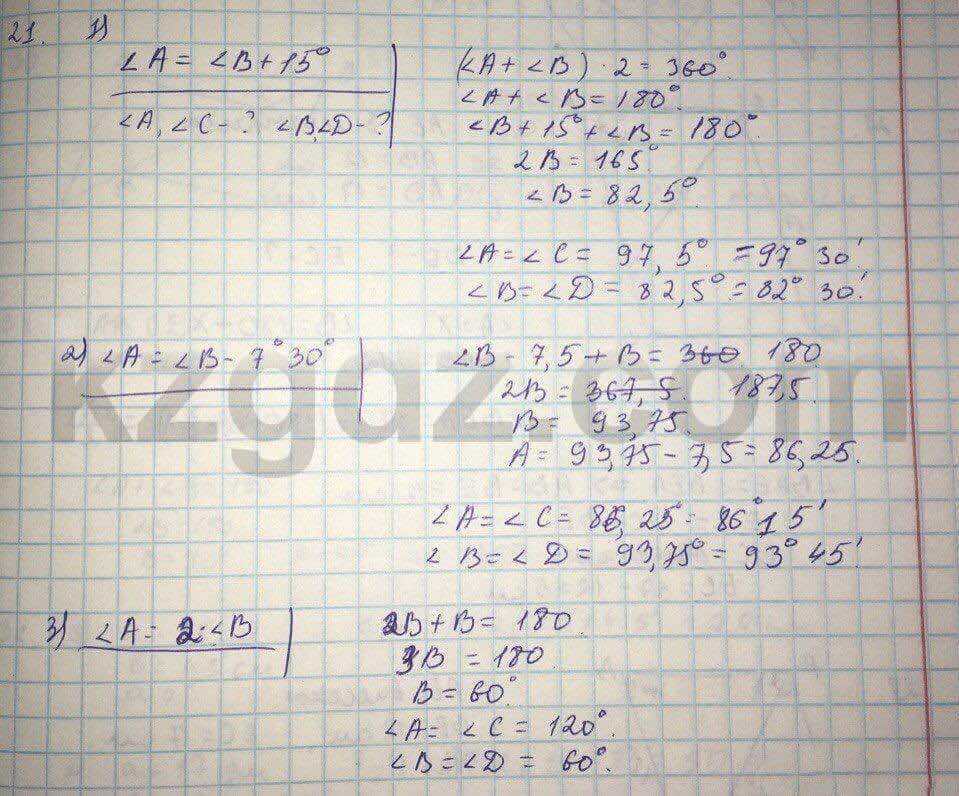 21. 1)
∠A = ∠B + 15°
∠A, ∠C - ? ∠B, ∠D - ?
(∠A + ∠B) · 2 = 360°.
∠A + ∠B = 180°.
∠B + 15° + ∠B = 180°.
2B = 165°.
∠B = 82,5°.
∠A = ∠C = 97,5° = 97° 30'
∠B = ∠D = 82,5° = 82° 30'.
2) ∠A = ∠B - 7° 30°
∠B - 7,5 + B = 360 180
2B = 367,5. 187,5.
B = 93,75.
A = 93,75 - 7,5 = 86,25.
∠A = ∠C = 86,25° = 86° 15'
∠B = ∠D = 93,75° = 93° 45'
3) ∠A = 2·∠B
2B + B = 180
3B = 180.
B = 60°
∠A = ∠C = 120°
∠B = ∠D = 60°.
kzgdz.com